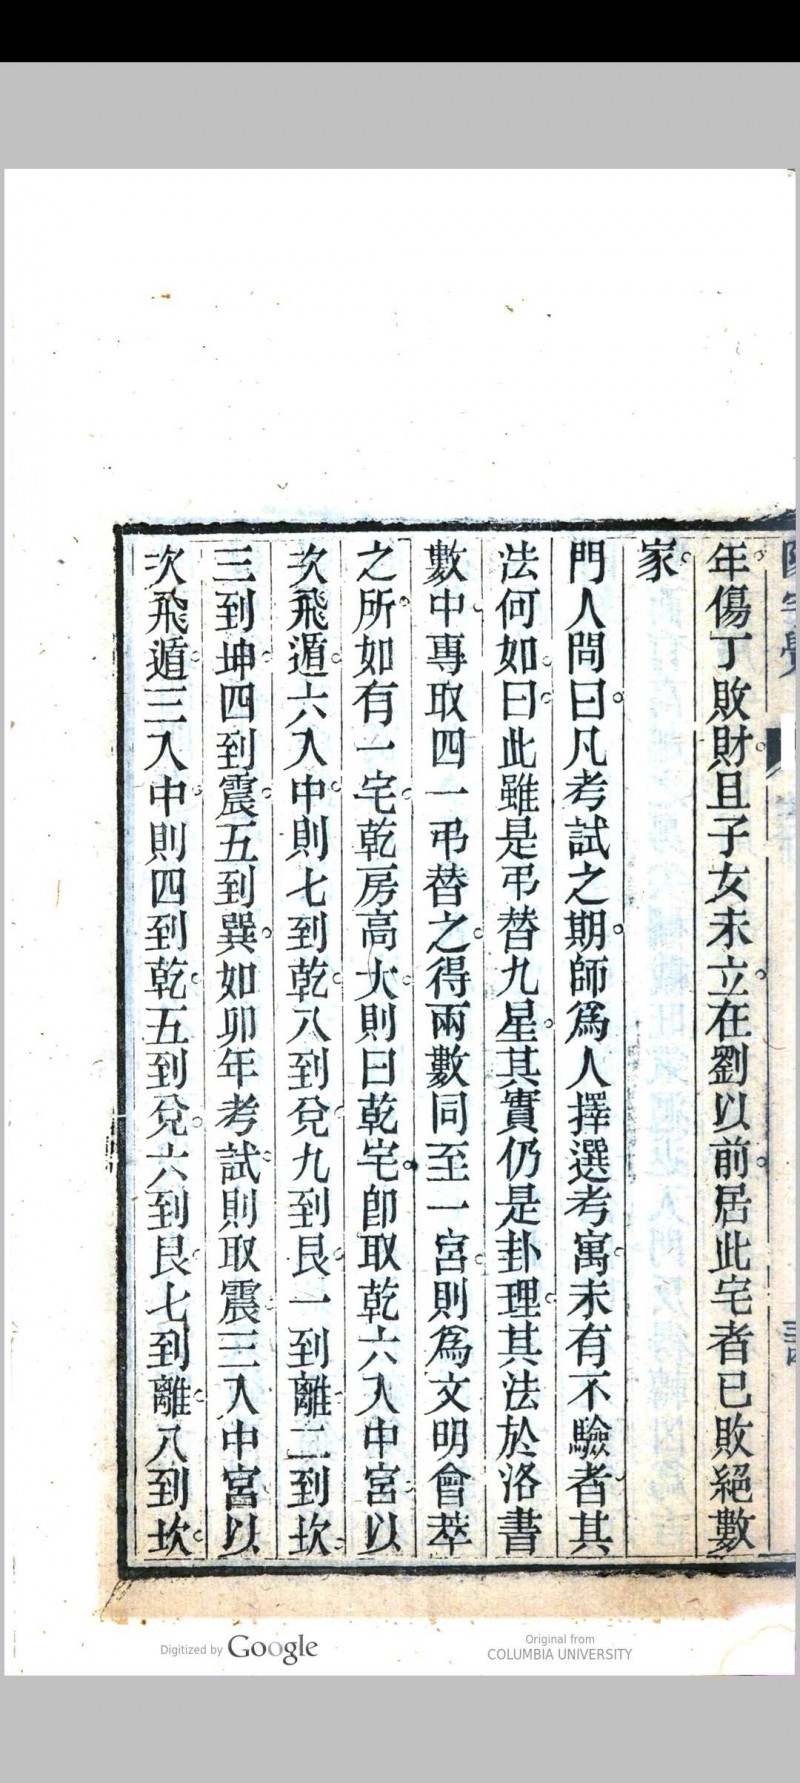 年傷丁敗財且子女未立在劉以前居此宅者已敗絕數
家
門人問曰凡考試之期師爲人擇選考寓未有不驗者其
法何如曰此雖是弔替九星其實仍是卦理其法於洛書
數中專取四一弔替之得兩數同至一宮則爲文明會萃
之所如有一宅乾房高大則曰乾宅卽取乾六入中宮以
次飛遁六入中則七到乾八到兌九到艮一到離二到坎
三到坤四到震五到巽如卯年考試則取震三入中宮以
次飛遁三入中則四到乾五到兌六到艮七到離八到坎
Digitized by Google
Original from
COLUMBIA UNIVERSITY